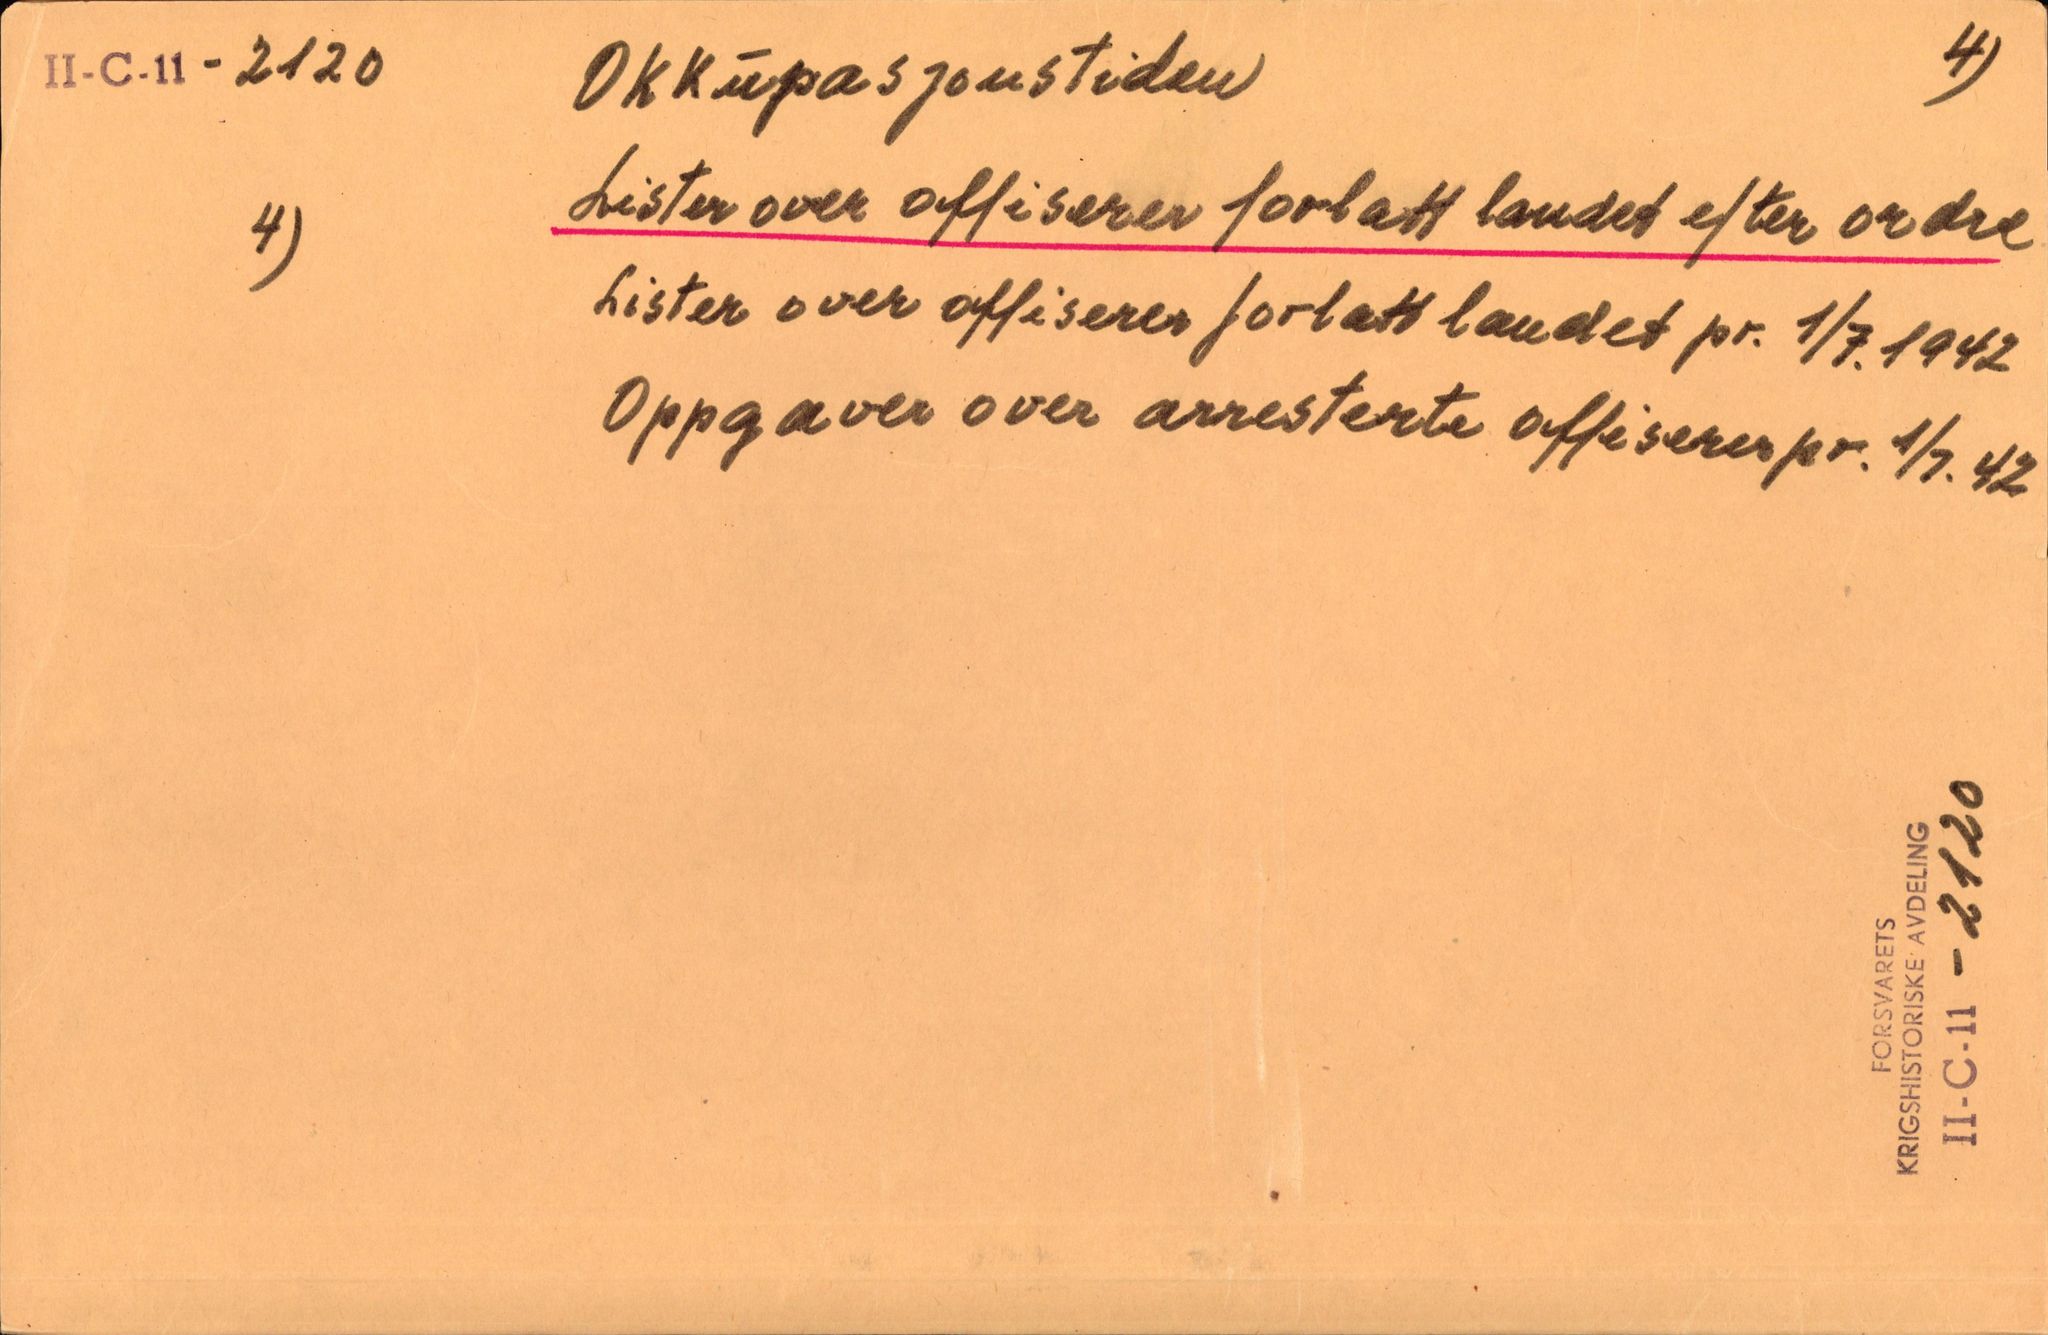 II-C-11 - 2120
Okkupasjonstiden
4)
4)
Lister over offiserer forlatt landet efter ordre
Lister over offiserer forlatt landet pr. 1/7. 1942
Oppgaver over arresterte offiserer pr. 1/7. 42
FORSVARETS
KRIGSHISTORISKE AVDELING
II-C-11 - 2120